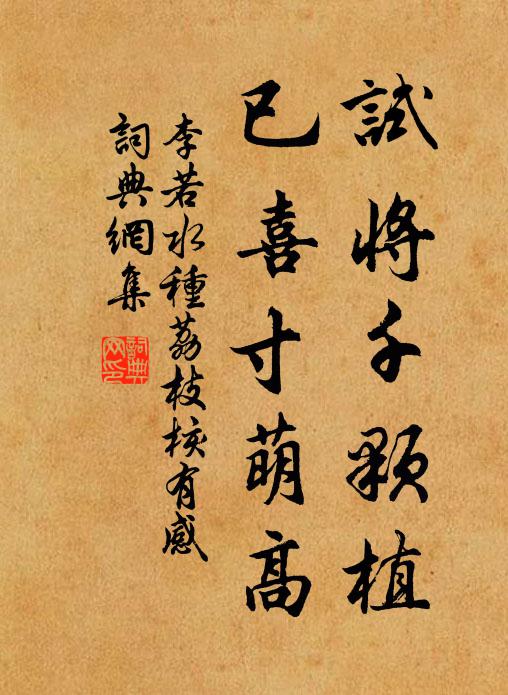 試將千顆植
已喜寸萌高
李若水種荔枝核有感
詞典網集
詞典網印